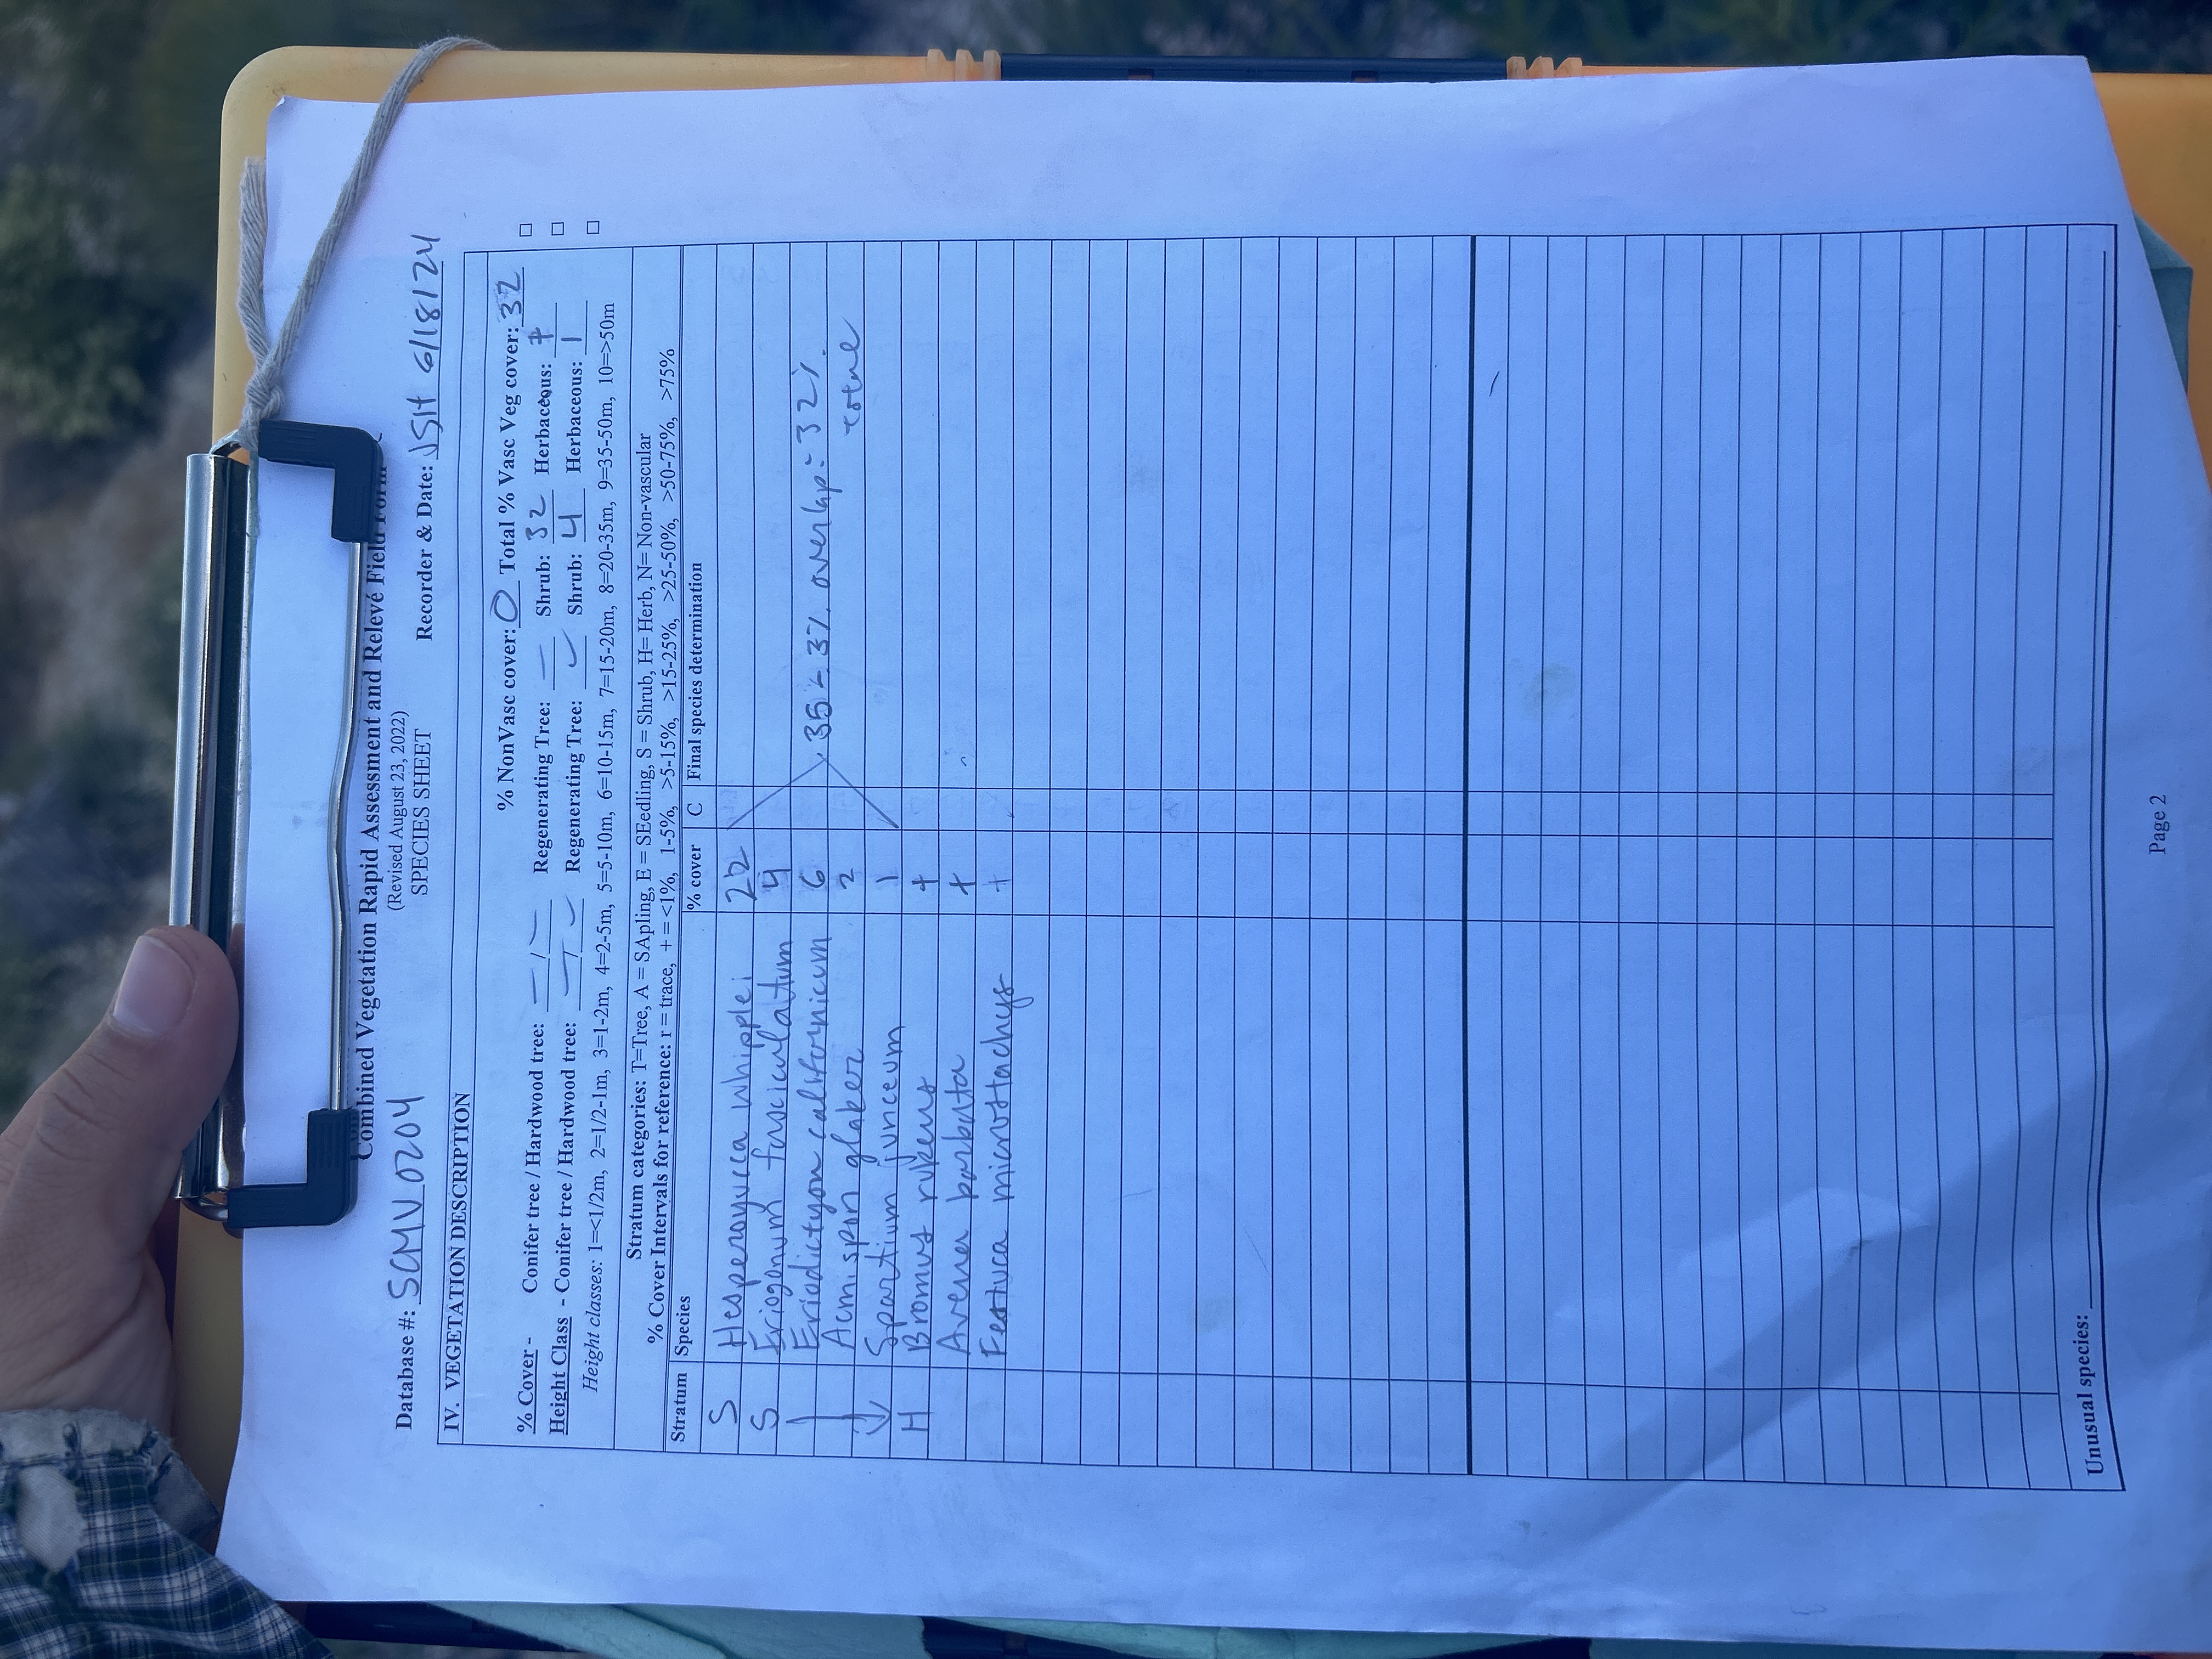 Combined Vegetation Rapid Assessment and Relevé Field Form
(Revised August 23, 2022)
SPECIES SHEET
Database #: SCMV0204 Recorder & Date: JSH 6/18/24
IV. VEGETATION DESCRIPTION
% NonVasc cover: 0 Total % Vasc Veg cover: 32
% Cover - Conifer tree / Hardwood tree: — / — Regenerating Tree: — Shrub: 32 Herbaceous: + □
Height Class - Conifer tree / Hardwood tree: — / — Regenerating Tree: — Shrub: 4 Herbaceous: 1 □
Height classes: 1=<1/2m, 2=1/2-1m, 3=1-2m, 4=2-5m, 5=5-10m, 6=10-15m, 7=15-20m, 8=20-35m, 9=35-50m, 10=>50m □
Stratum categories: T=Tree, A = SApling, E = SEedling, S = Shrub, H= Herb, N= Non-vascular
% Cover Intervals for reference: r = trace, + = <1%, 1-5%, >5-15%, >15-25%, >25-50%, >50-75%, >75%
Stratum Species % cover C Final species determination
S Hesperoyucca whipplei 22
S Eriogonum fasciculatum 4
Eriodictyon californicum 6 35% - 3% overlap = 32%
Acmispon glaber 2 total
↓ Spartium junceum 1
H Bromus rubens +
Avena barbata +
Festuca microstachys +
Unusual species:
Page 2